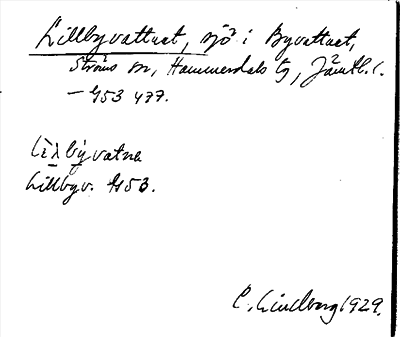 Lillbyvattnet, sjö i Byvattnet,
Ströms sn, Hammerdals tg, Jämtl. l.
— G53 477.
Lìλ bývatne
Lillbyv. G53.
C. Lindberg 1929.